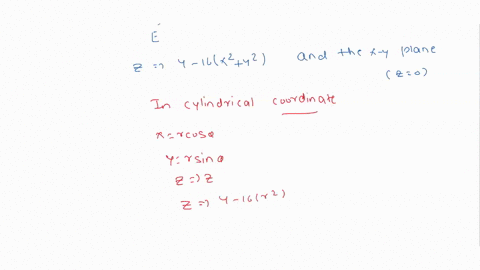 E
z => 4-16(x²+y²) and the x-y plane
(z=0)
In cylindrical coordinate
x=rcosθ
y=rsinθ
z=>z
z => 4-16(r²)